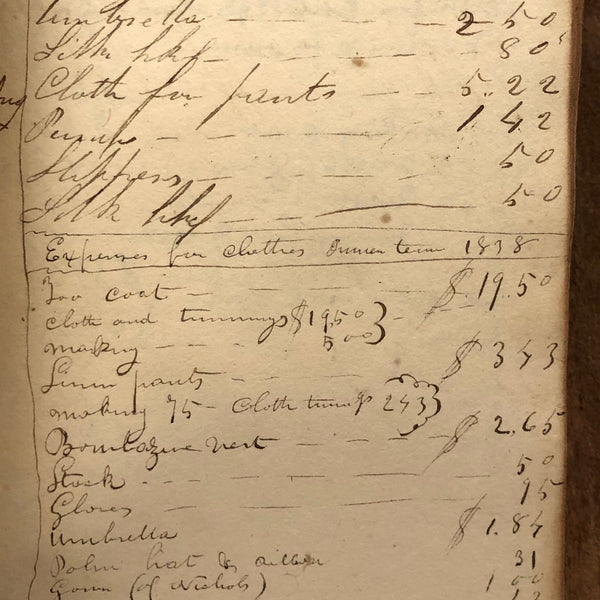 Umbrella — — — 2 50
Silk hkf — — — 80
Cloth for pants — — 5.22
— — — 1.42
Slippers — — — 50
Silk hkf — — 50
Expenses for clothes Summer term 1838
For coat — — — $.19.50
cloth and trimmings $19,50 } —
making — — — 5 00
Linen pants — — — $ 343
making 75 — Cloth trimgs 243 }
Bombazine vest — — — $ 2.65
Stock — — — 50
Gloves — — — 95
Umbrella $ 1.84
Palm hat 31
Gown (of Nichols) 1 00